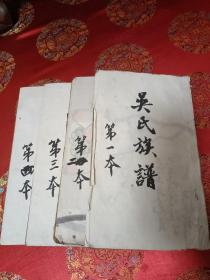 吳氏族譜
第一本
第二本
第三本
第四本